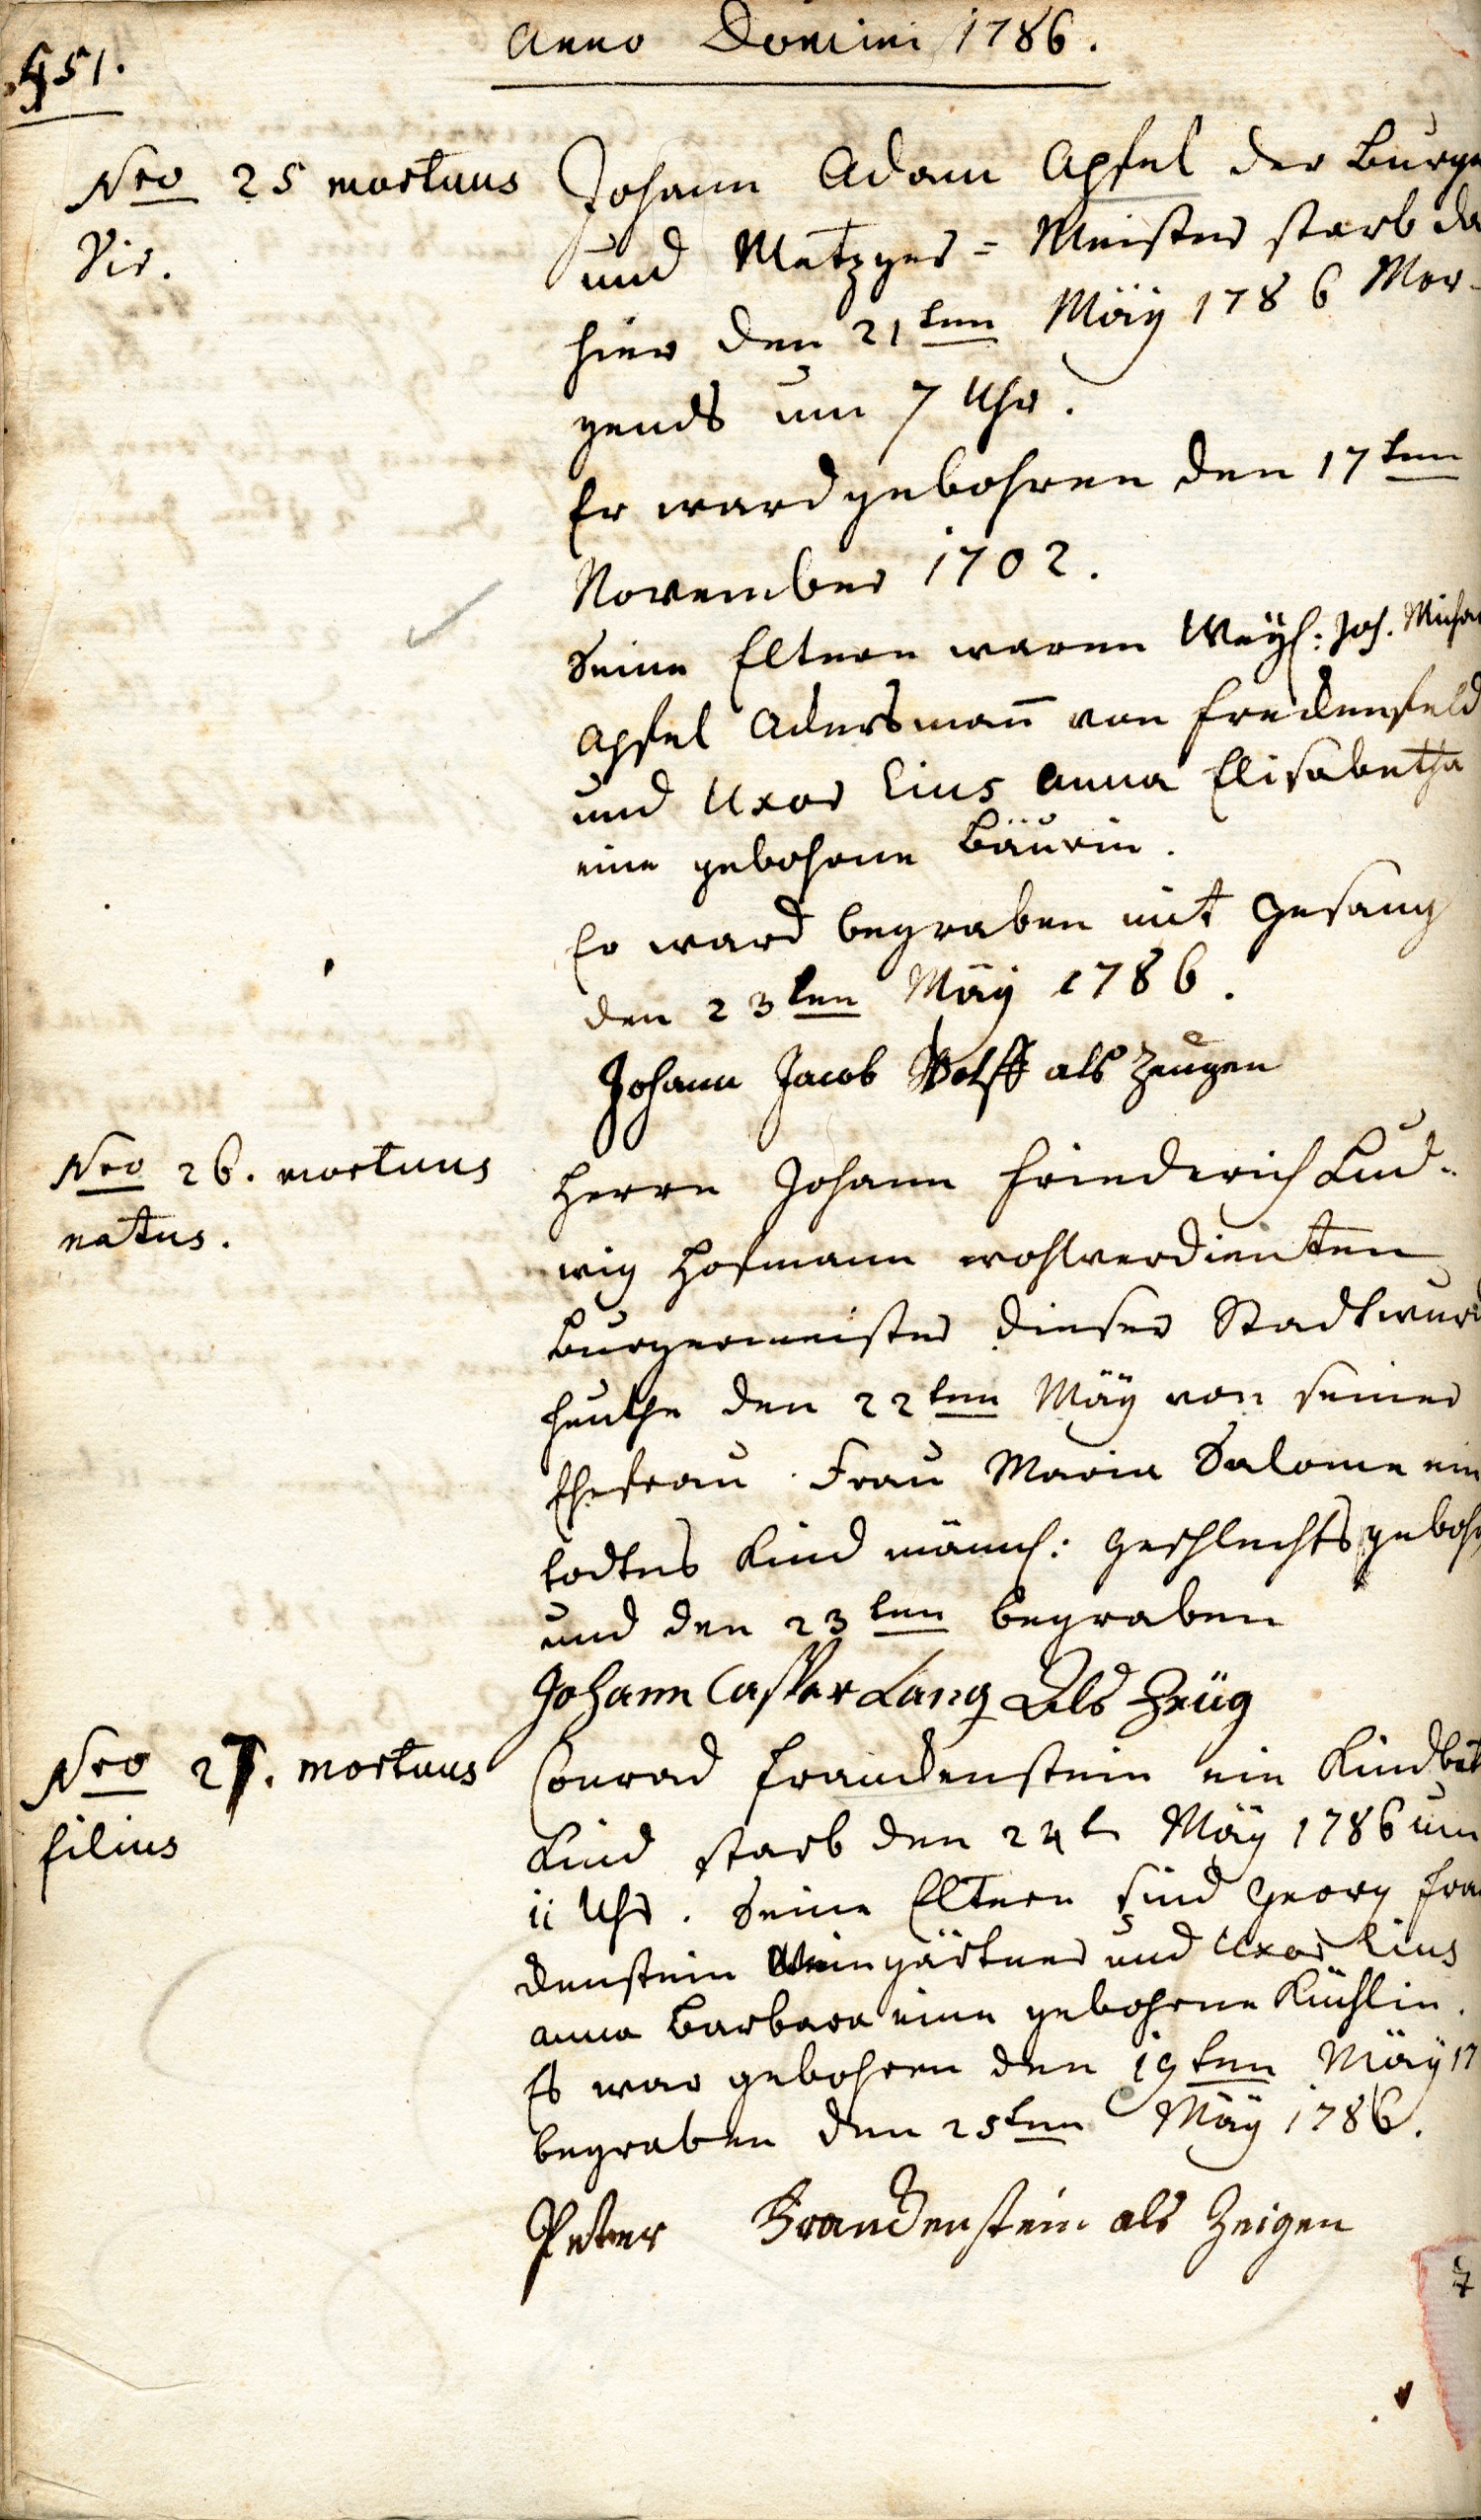 451.
Anno Domini 1786.
Nro 25 mortuus
Vir.
Johann Adam Apfel der Burge
und Metzger = Meister starb da
hier den 21ten Mäÿ 1786 Mor-
gends um 7 Uhr.
Er ward gebohren den 17ten
November 1702.
Seine Eltern waren Weÿl: Joh. Micha
Apfel Ackersman̄ von
und Uxor Eius Anna Elisabetha
eine gebohrne Bäurin.
Er ward begraben mit Gesang
den 23ten Mäÿ 1786.
Johann Jacob Wolff als Zeugen
Nro 26. mortuus
natus.
Herrn Johann Friederich Lud-
wig Hofmann wohlverdienten
Burgermeister dieser Stadt wurd
heuthe den 22ten Mäÿ von seiner
Ehefrau Frau Maria Salome ein
todtes Kind männl: Geschlechts geboh
und den 23ten begraben
Johann Casper Lang Als Zeüg
Nro 27. mortuus
filius
Conrad Franckenstein ein Kindbet
Kind starb den 24t Mäÿ 1786 um
11 Uhr. Seine Eltern sind Georg Fra
ckenstein Weingärtner und Uxor Eius
Anna Barbara eine gebohrne Küchlin.
Es war gebohren den 19ten Mäÿ 17
begraben den 25ten Mäÿ 1786.
Peter Franckenstein als Zeigen